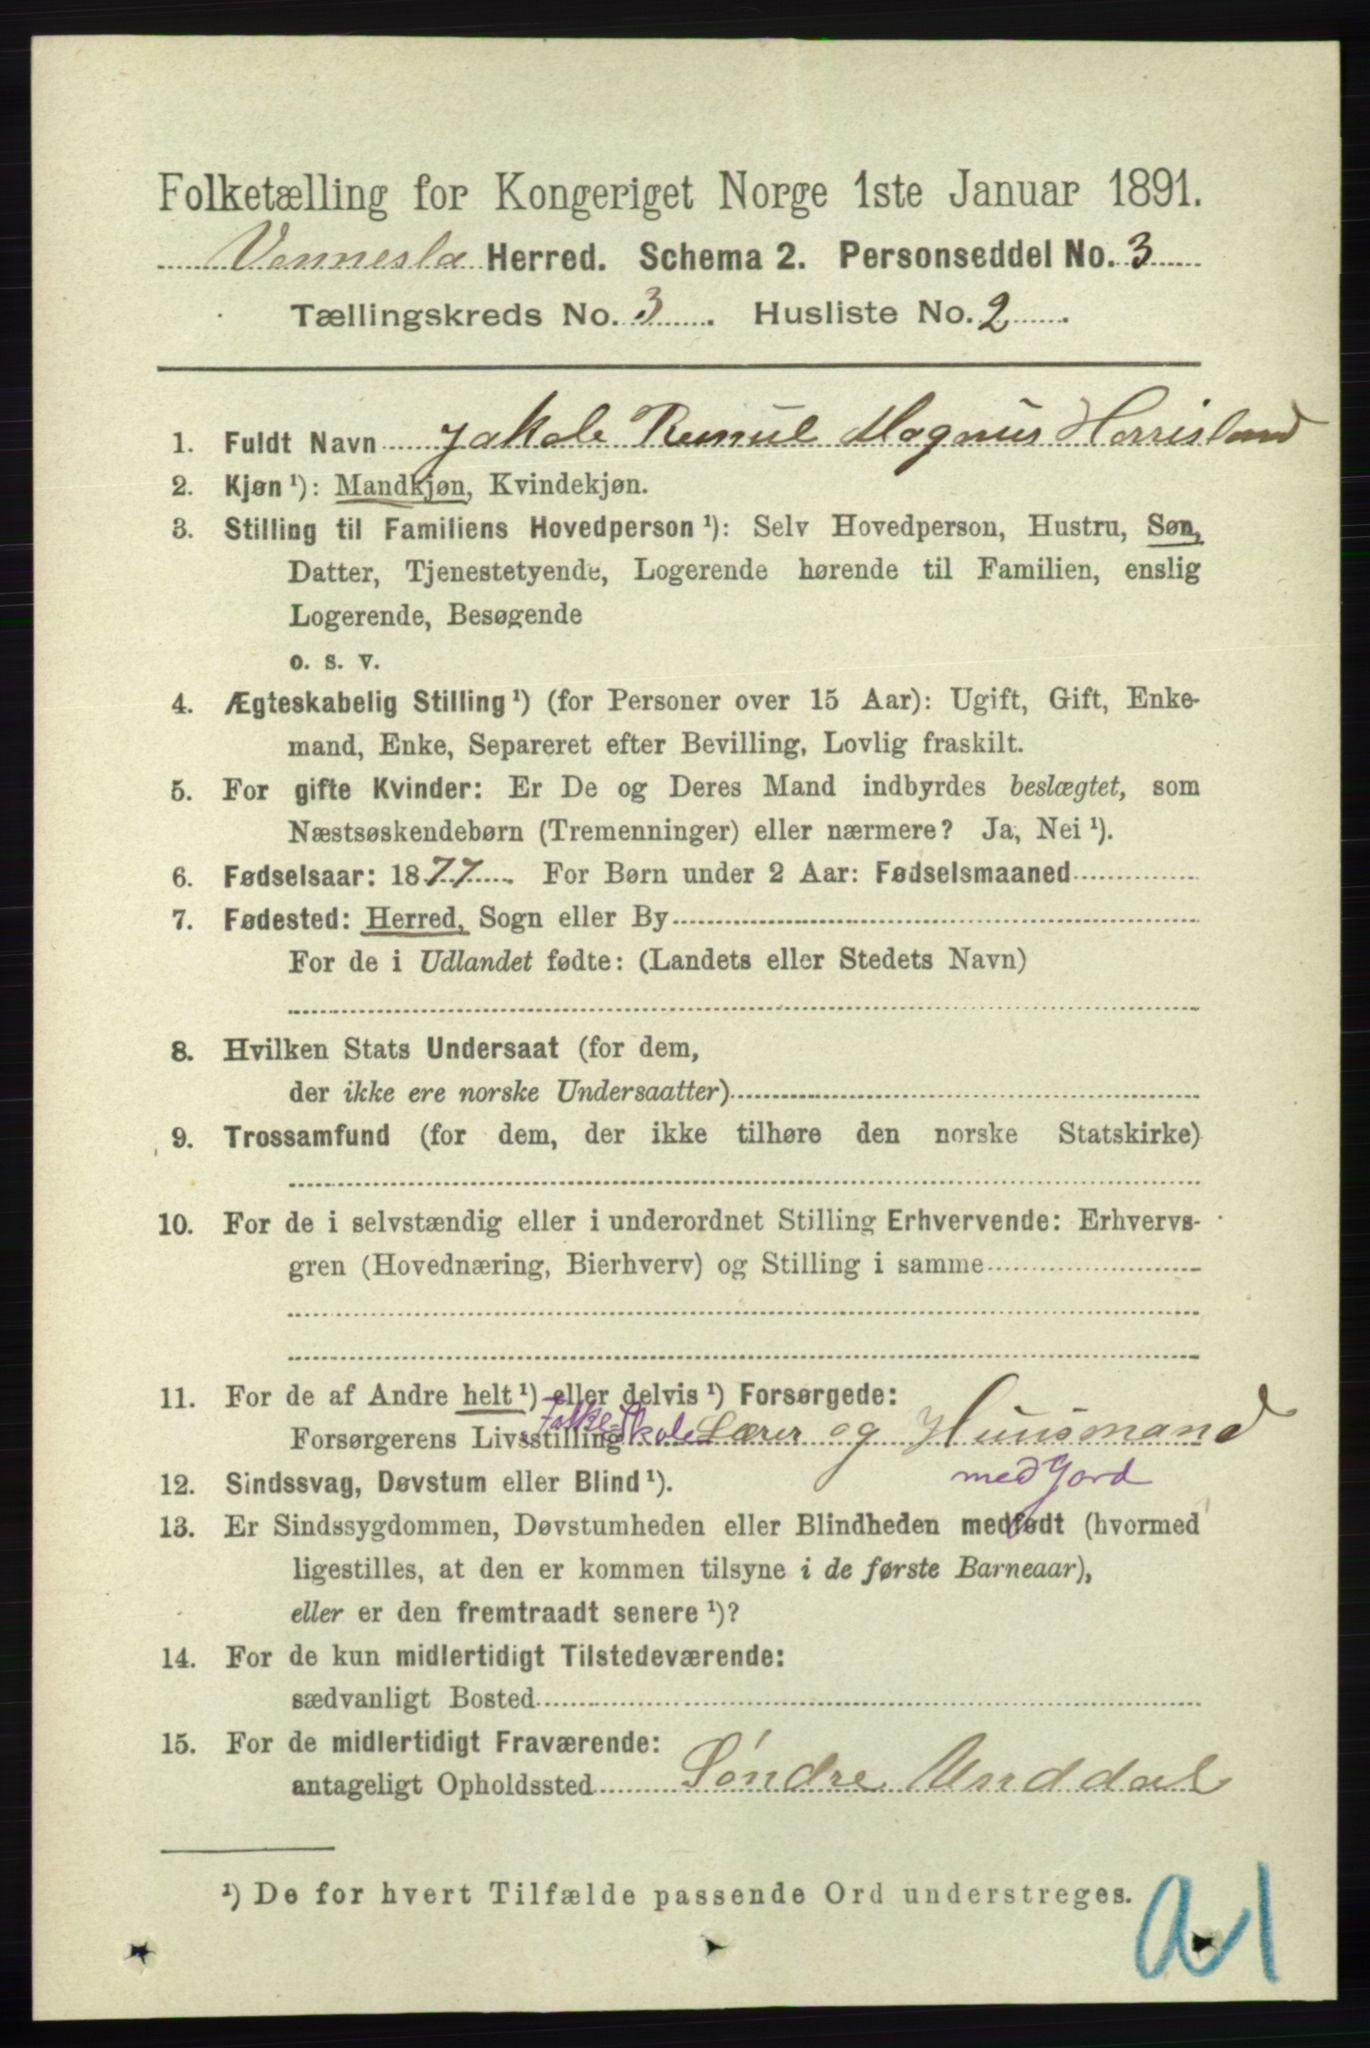 Folketælling for Kongeriget Norge 1ste Januar 1891.
Vennesla Herred. Schema 2. Personseddel No. 3
Tællingskreds No. 3. Husliste No. 2.
1. Fuldt Navn Jakob Magnus Horrisland
2. Kjøn ¹): Mandkjøn, Kvindekjøn.
3. Stilling til Familiens Hovedperson ¹): Selv Hovedperson, Hustru, Søn,
Datter, Tjenestetyende, Logerende hørende til Familien, enslig
Logerende, Besøgende
o. s. v.
4. Ægteskabelig Stilling ¹) (for Personer over 15 Aar): Ugift, Gift, Enke-
mand, Enke, Separeret efter Bevilling, Lovlig fraskilt.
5. For gifte Kvinder: Er De og Deres Mand indbyrdes beslægtet, som
Næstsøskendebørn (Tremenninger) eller nærmere? Ja, Nei ¹).
6. Fødselsaar: 1877. For Børn under 2 Aar: Fødselsmaaned
7. Fødested: Herred, Sogn eller By
For de i Udlandet fødte: (Landets eller Stedets Navn)
8. Hvilken Stats Undersaat (for dem,
der ikke ere norske Undersaatter)
9. Trossamfund (for dem, der ikke tilhøre den norske Statskirke)
10. For de i selvstændig eller i underordnet Stilling Erhvervende: Erhvervs-
gren (Hovednæring, Bierhverv) og Stilling i samme
11. For de af Andre helt ¹) eller delvis ¹) Forsørgede:
Forsørgerens Livsstilling Folke-Skole Lærer og Huusmand
med Jord
12. Sindssvag, Døvstum eller Blind ¹).
13. Er Sindssygdommen, Døvstumheden eller Blindheden medfødt (hvormed
ligestilles, at den er kommen tilsyne i de første Barneaar),
eller er den fremtraadt senere ¹)?
14. For de kun midlertidigt Tilstedeværende:
sædvanligt Bosted
15. For de midlertidigt Fraværende:
antageligt Opholdssted Söndre Unddal
¹) De for hvert Tilfælde passende Ord understreges.
a1